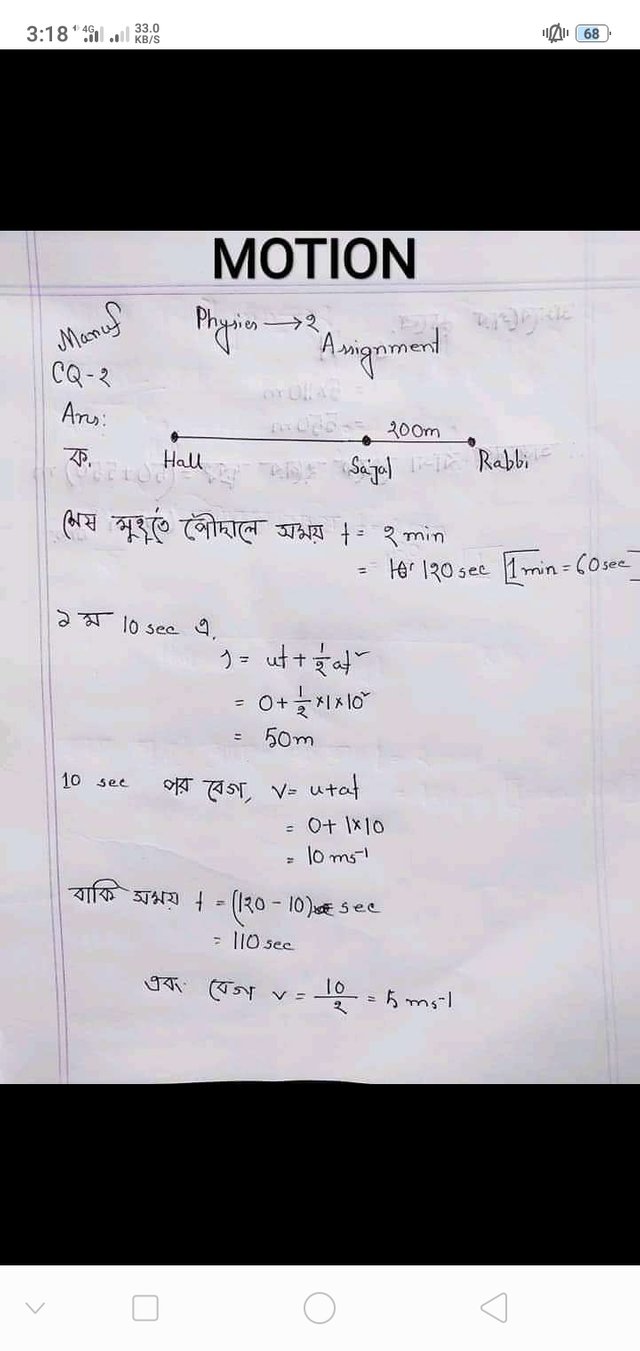 3:18 4G 33.0 KB/S 68
MOTION
Maruf
Physics → 2
Assignment
CQ-2
Ans:
200m
ক. Hall Sajal Rabbi
শেষ মূহূর্তে পৌঁছালে সময় t = 2 min
= 120 sec [1 min = 60 sec]
১ম 10 sec এ,
s = ut + ½at²
= 0 + ½ × 1 × 10²
= 50m
10 sec পর বেগ, v = u+at
= 0 + 1×10
= 10 ms⁻¹
বাকি সময় t = (120 - 10) sec
= 110 sec
এবং বেগ v = 10/2 = 5 ms-1